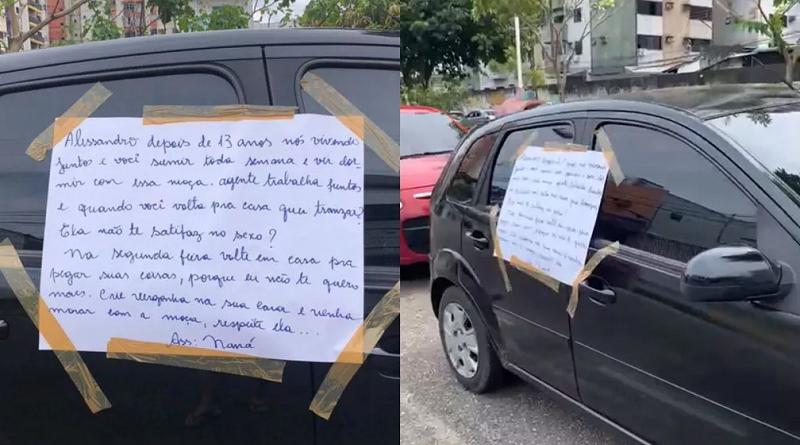 Alessandro depois de 13 anos nós vivendo
juntos e você sumir toda semana e vir dor-
mir com essa moça. agente trabalha juntos
e quando você volta pra casa quer tranzar?
Ela não te satifaz no sexo?
Na segunda feira volte em casa pra
pegar suas coisas, porque eu não te quero
mais. Crie vergonha na sua cara e venha
morar com a moça, respeite ela...
Ass: Naná